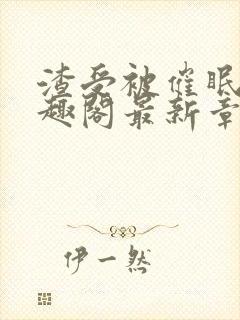 渣受被催眠
趣阁最新章
伊一然